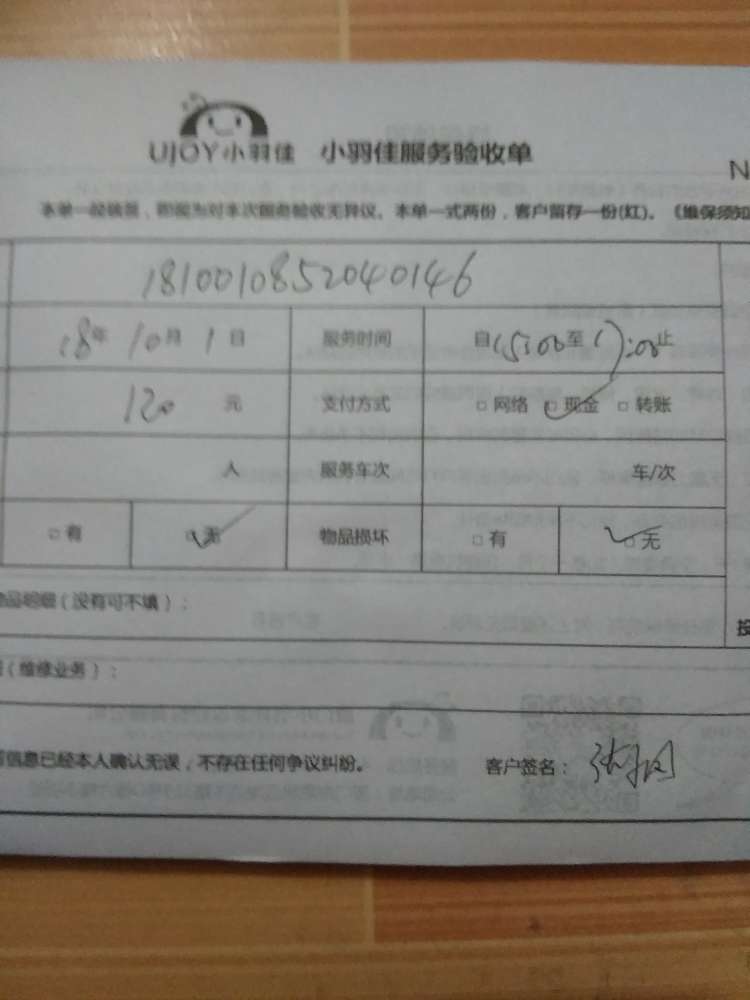 UJOY小羽佳 小羽佳服务验收单
N
本单一经签署，即视为对本次服务验收无异议。本单一式两份，客户留存一份(红)。《维保须知
1810010852040146
18年 10月 1日 服务时间 自15:00至17:00止
120 元 支付方式 □网络 □现金 □转账
人 服务车次 车/次
□有 □无 物品损坏 □有 □无
物品明细（没有可不填）：
（维修业务）：
信息已经本人确认无误，不存在任何争议纠纷。 客户签名：